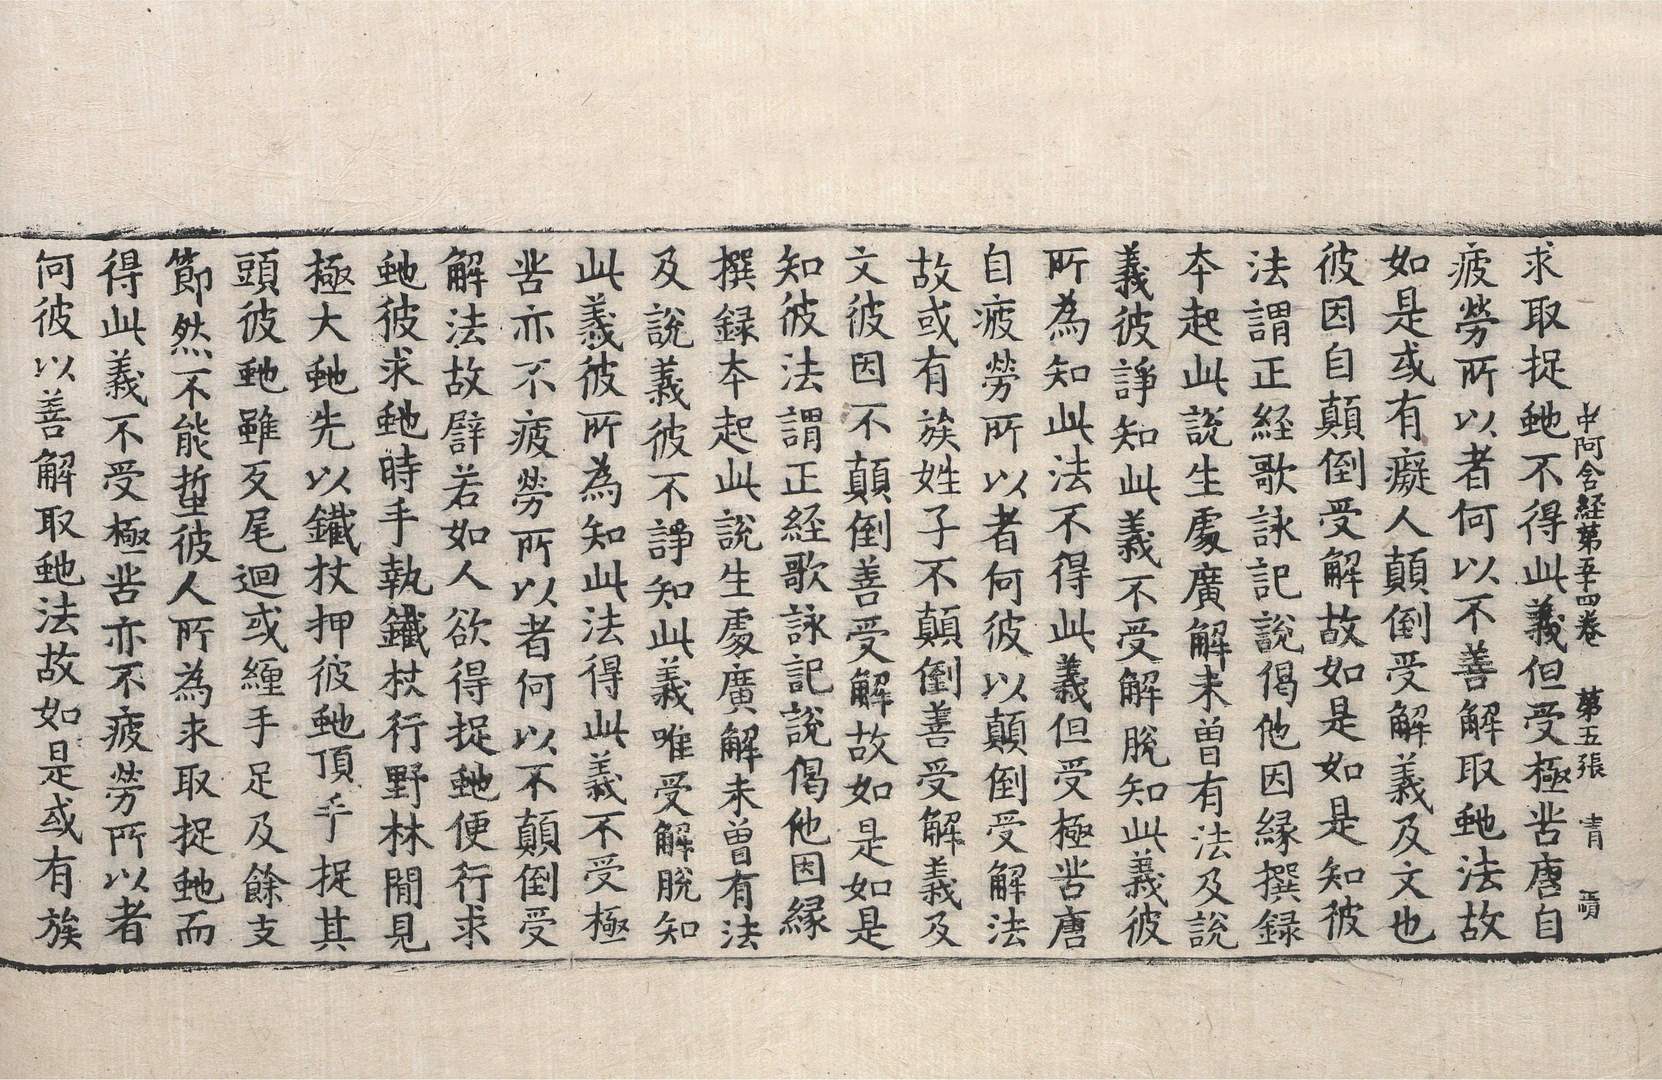 中阿含経第五十四卷 第五張 青
求取捉虵不得此義但受極苦唐自
疲勞所以者何以不善解取虵法故
如是或有癡人顛倒受解義及文也
彼因自顛倒受解故如是如是知彼
法謂正経歌詠記說偈他因縁撰録
本起此說生處廣解未曽有法及說
義彼諍知此義不受解脫知此義彼
所為知此法不得此義但受極苦唐
自疲勞所以者何彼以顛倒受解法
故或有族姓子不顛倒善受解義及
文彼因不顛倒善受解故如是如是
知彼法謂正経歌詠記說偈他因縁
撰録本起此說生處廣解未曽有法
及說義彼不諍知此義唯受解脫知
此義彼所為知此法得此義不受極
苦亦不疲勞所以者何以不顛倒受
解法故譬若如人欲得捉虵便行求
虵彼求虵時手執鐵杖行野林間見
極大虵先以鐵杖押彼虵頂手捉其
頭彼虵雖反尾迴或纏手足及餘支
節然不能蜇彼人所為求取捉虵而
得此義不受極苦亦不疲勞所以者
何彼以善解取虵法故如是或有族